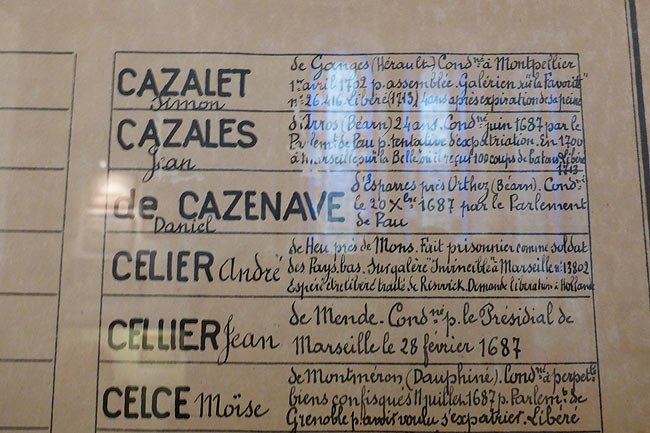 CAZALET Simon
de Ganges (Hérault) Cond.né à Montpellier
1er avril 1702 p. assemblée. Galérien sur "la Favorite"
n° 26.416 Libéré (1713) 4 ans après expiration de sa peine
CAZALES Jean
d'Arros (Béarn) 24 ans. Cond.né juin 1687 par le
Parlemt de Pau p. tentative d'expatriation. En 1700
à Marseille sur la Belle, où il reçut 100 coups de baton. Libéré
1713
de CAZENAVE Daniel
d'Esparres près Orthez (Béarn). Cond.né
le 20 Xbre 1687 par le Parlement
de Pau
CELIER André
de Heu près de Mons. Fait prisonnier comme soldat
des Pays bas. Sur galère "Invincible" à Marseille n° 13802
Espère être libéré traité de Riswick. Demande libération à Holland
CELLIER Jean
de Mende. Cond.né p. le Présidial de
Marseille le 28 février 1687
CELCE Moïse
de Montméron (Dauphiné). Cond.né à perpété
biens confisqués 11 juillet 1687 p. Parlem.t de
Grenoble p. avoir voulu s'expatrier. Libéré